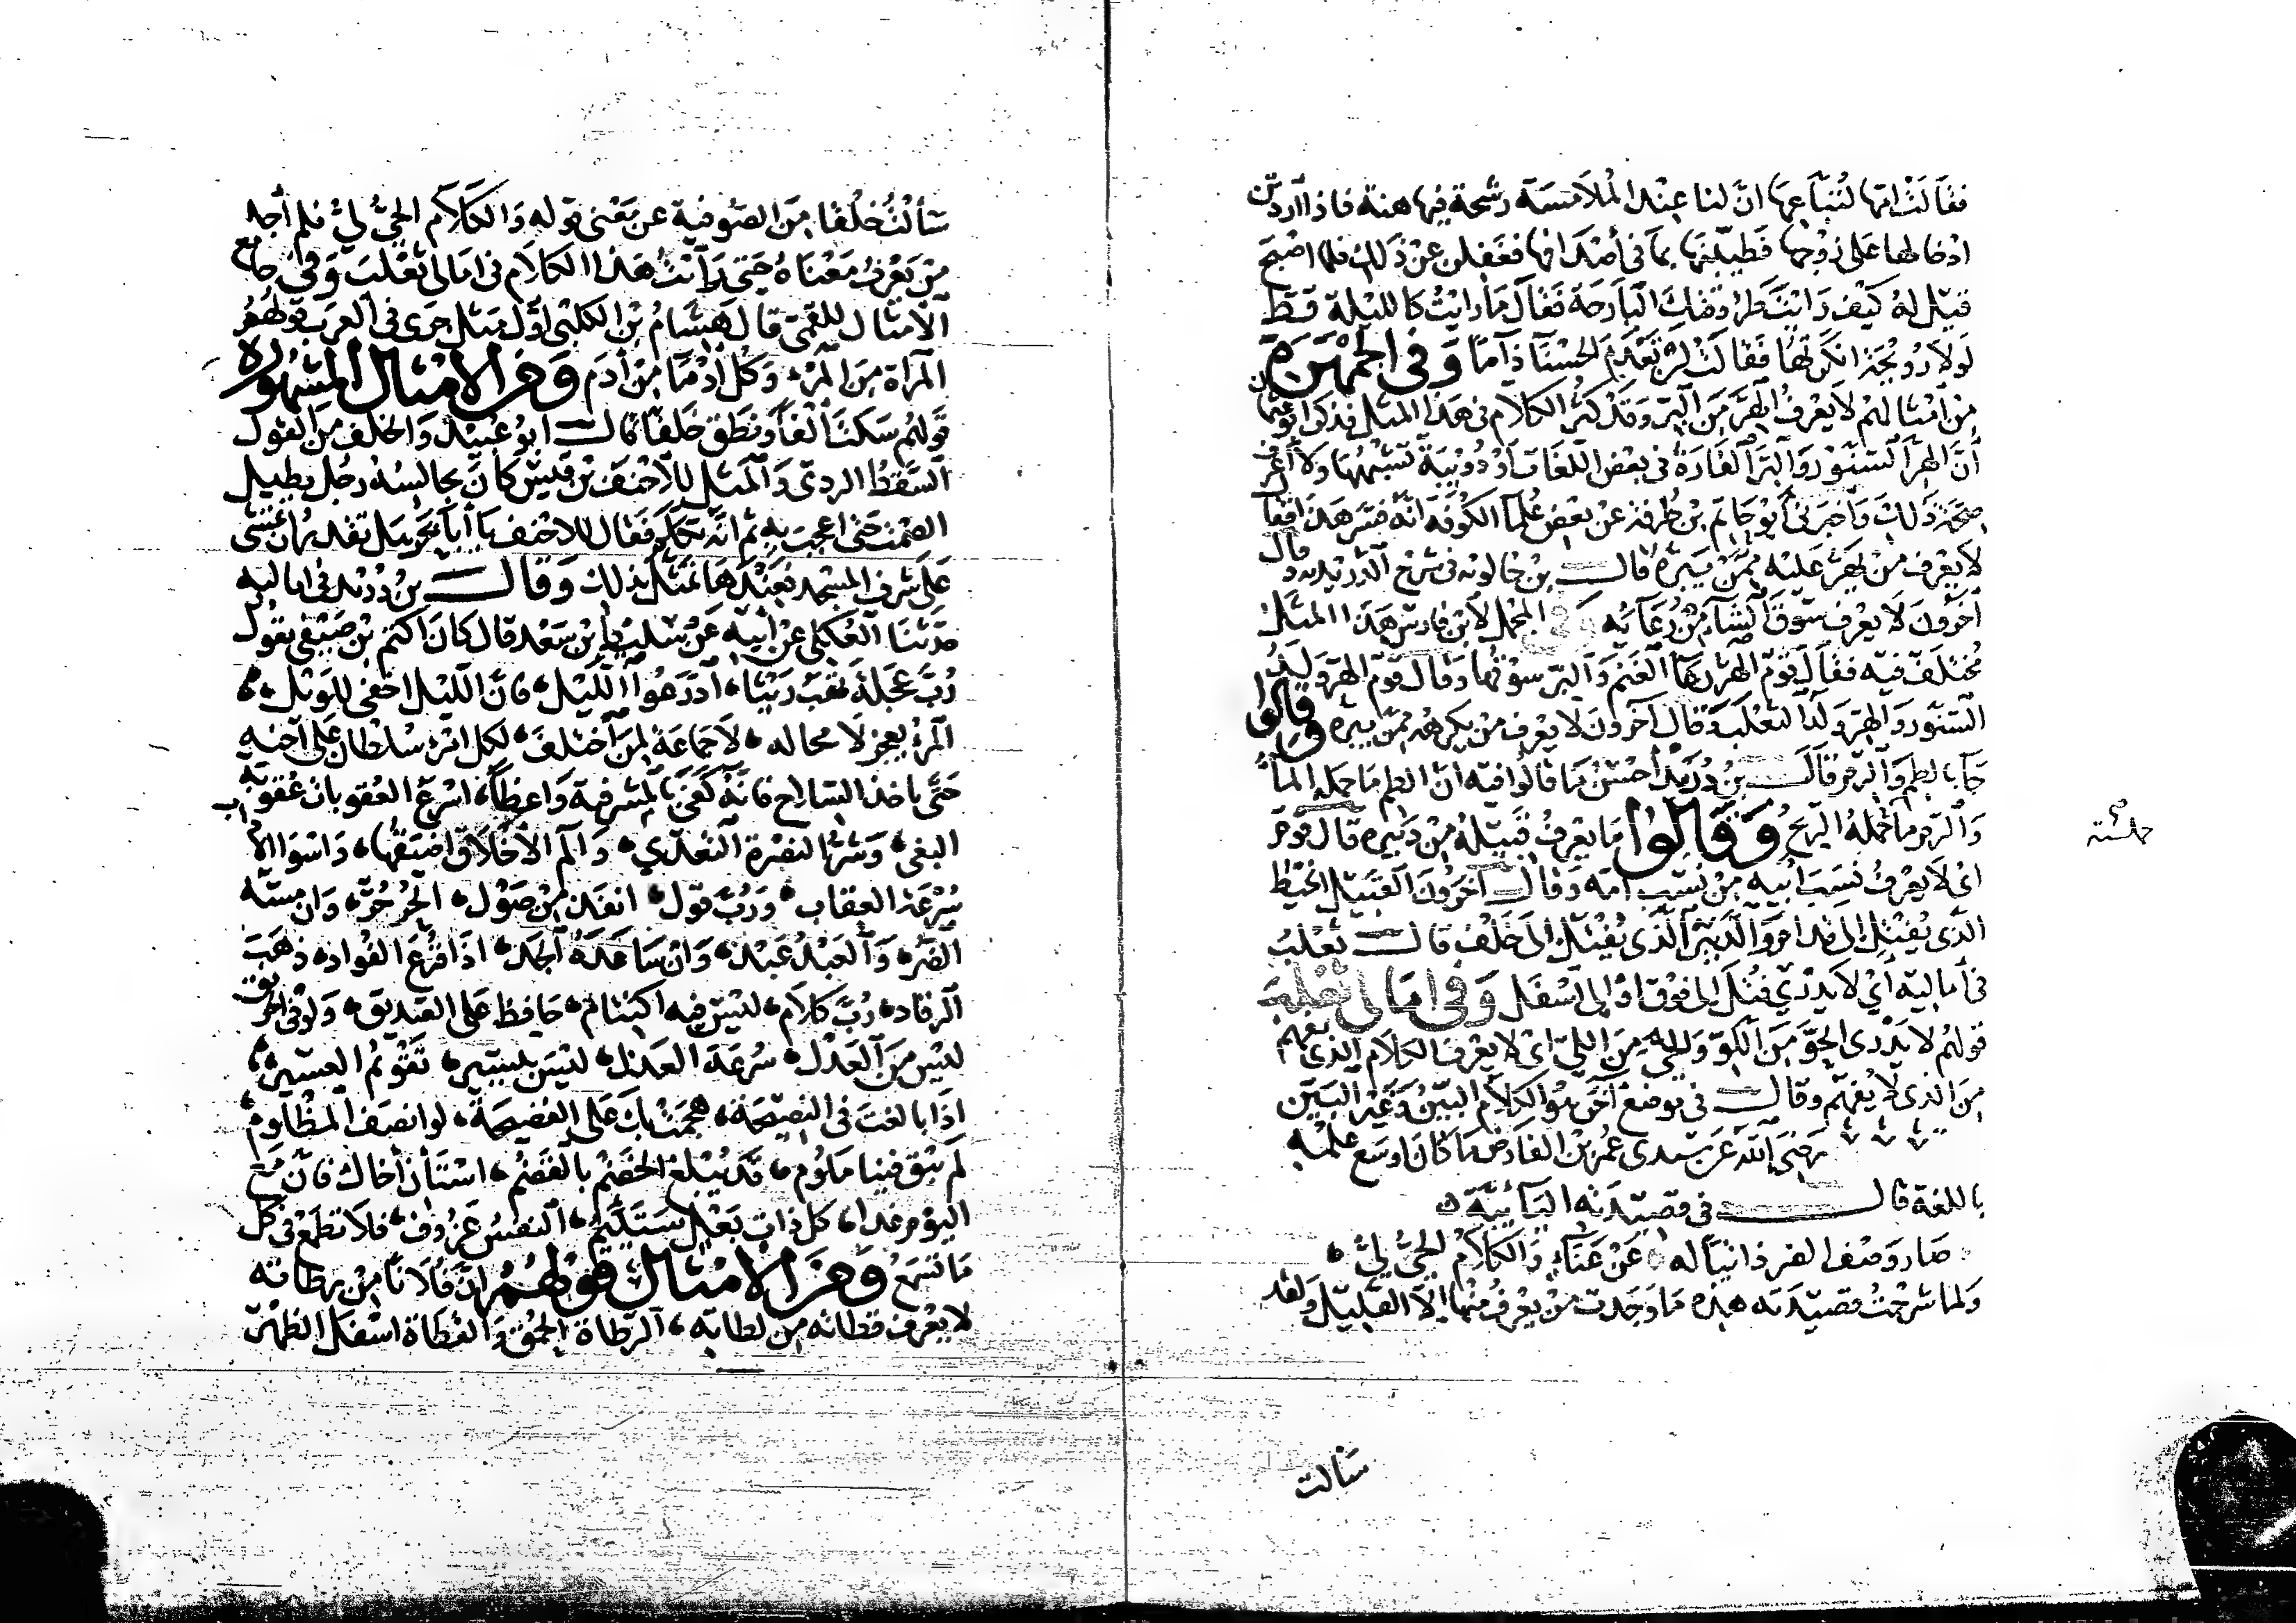 فقالت امها لتباعها ان لنا عند الملامسة رشحة فيها هنة فاذا اردتن
ادخالها على زوجها فطيبنها بما في أصدافها فغفلن عن ذلك فلما اصبح
قيل له كيف رايت طروقتك البارحة فقال ما رايت كالليلة قط
لولا رويحة انكرتها فقالت لن تعدم الحسنا ذاما وفي الجمهرة
من أمثالهم لا يعرف الهر من البر وقد كثر الكلام في هذا المثل فذكروا
أن الهر السنور والبر الفارة في بعض اللغات او دويبة تشبهها ولا أعرف
صحة ذلك واخبرني أبو حاتم بن طرفة عن بعض علما الكوفة انه فسر هذا فقال
لا يعرف من يهر عليه ممن يبره قال بن خالويه في شرح الدريدية وقال
آخرون لا يعرف سوق الشاء من دعايه وفي المجمل لابن فارس هذا المثل
مختلف فيه فقال قوم الهر دعا الغنم والبر سوقها وقال قوم الهر ولد
السنور والبر ولد الثعلب وقال آخرون لا يعرف من يكرهه ممن يبره وقالوا
جا بالطم والرم قال بن دريد أحسن ما قالوا فيه ان الطم ما حمله الماء
والرم ما حمله الريح وقالوا ما يعرف قبيله من دبيره قال قوم
اى لا يعرف نسب ابيه من نسب امه وقال اخرون القبيل الخيط
الذي يفتل الى قدام والدبير الذي يفتل الى خلف قال ثعلب
في أماليه أي لا يدري فتل الى فوق او الى اسفل وفي امالى ثعلب
قولهم لا يدرى الحو من اللو والحي من اللي اى لا يعرف الكلام الذي يفهم
من الذي لا يفهم وقال في موضع آخر هو الكلام البين وغير البين
رضى الله عن سيدى عمر بن الفارض ما كان اوسع علمه
باللغة قال في قصيدته اليائية
صار وصف الضر ذاتيا له عن عناء والكلام الحي لي
ولما شرحت قصيدته هذه ما وجدت من يعرف منها الا القليل ولقد
سالت
سألت خلقا من الصوفية عن معنى قوله والكلام الحي لي فلم أجد
من يعرف معناه حتى رأيت هذا الكلام في امالى ثعلب وفي جامع
الأمثال للقمي قال هشام بن الكلبي اول مثل جرى في العرب قولهم
المراة من المرء وكل ادما من آدم ومن الامثال المشهورة
قولهم سكت الفا ونطق خلفا قال ابو عبيد والخلف من القول
السقط الردى والمثل للاحنف بن قيس كان يجالسه رجل يطيل
الصمت حتى اعجب به ثم انه تكلم فقال للاحنف يا أبا بحر هل تقدر ان تمشى
على شرف المسجد فعندها تمثل بذلك وقال بن دريد في اماليه
حدثنا العكلى عن أبيه عن سليط بن سعد قال كان اكثم بن صيفي يقول
رب عجلة تهب ريثا ادرعوا الليل فان الليل اخفى للويل
المرء يعجز لا محاله لا جماعة لمن اختلف لكل امرء سلطان على اخيه
حتى ياخذ السلاح فانه كفى بالمشرفية واعظا اسرع العقوبات عقوبة
البغي وشر النصرة التعدي والم الاخلاق اضيقها واسوا الاداب
سرعة العقاب ورب قول انفذ من صول الحر حر وان مسه
الضر والعبد عبد وان ساعده الجد اذا فزع الفواد ذهب
الرقاد رب كلام ليس فيه اكتتام حافظ على الصديق ولو في الحريق
ليس من العدل سرعة العذل ليس بيسير تقويم العسير
اذا بالغت في النصيحة هجمت بك على الفضيحة لو انصف المظلوم
لم يبق فينا ملوم قد يبلغ الخضم بالقضم استأن أخاك فان مع
اليوم غدا كل ذات بعل ستئيم النفس عزوف فلا تطمع في كل
ما تسمع ومن الامثال قولهم ان فلانا من رطاته
لا يعرف قطاته من لطاته الرطاة الحمق والقطاة اسفل الظهر